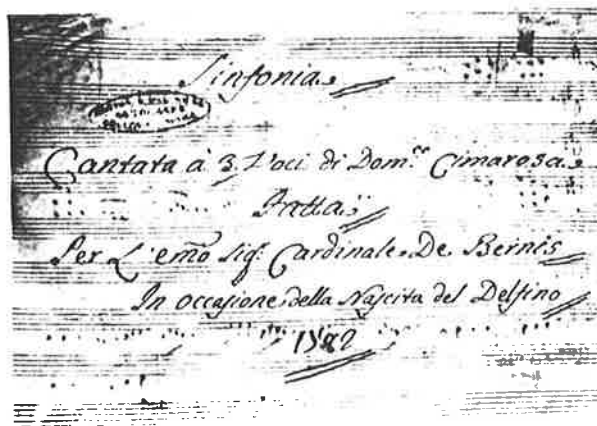 Sinfonia
Cantata à 3 Voci di Dom.co Cimarosa
Fatta
Per L'emo Sigr. Cardinale De Bernis
In occasione della Nascita del Delfino
1782